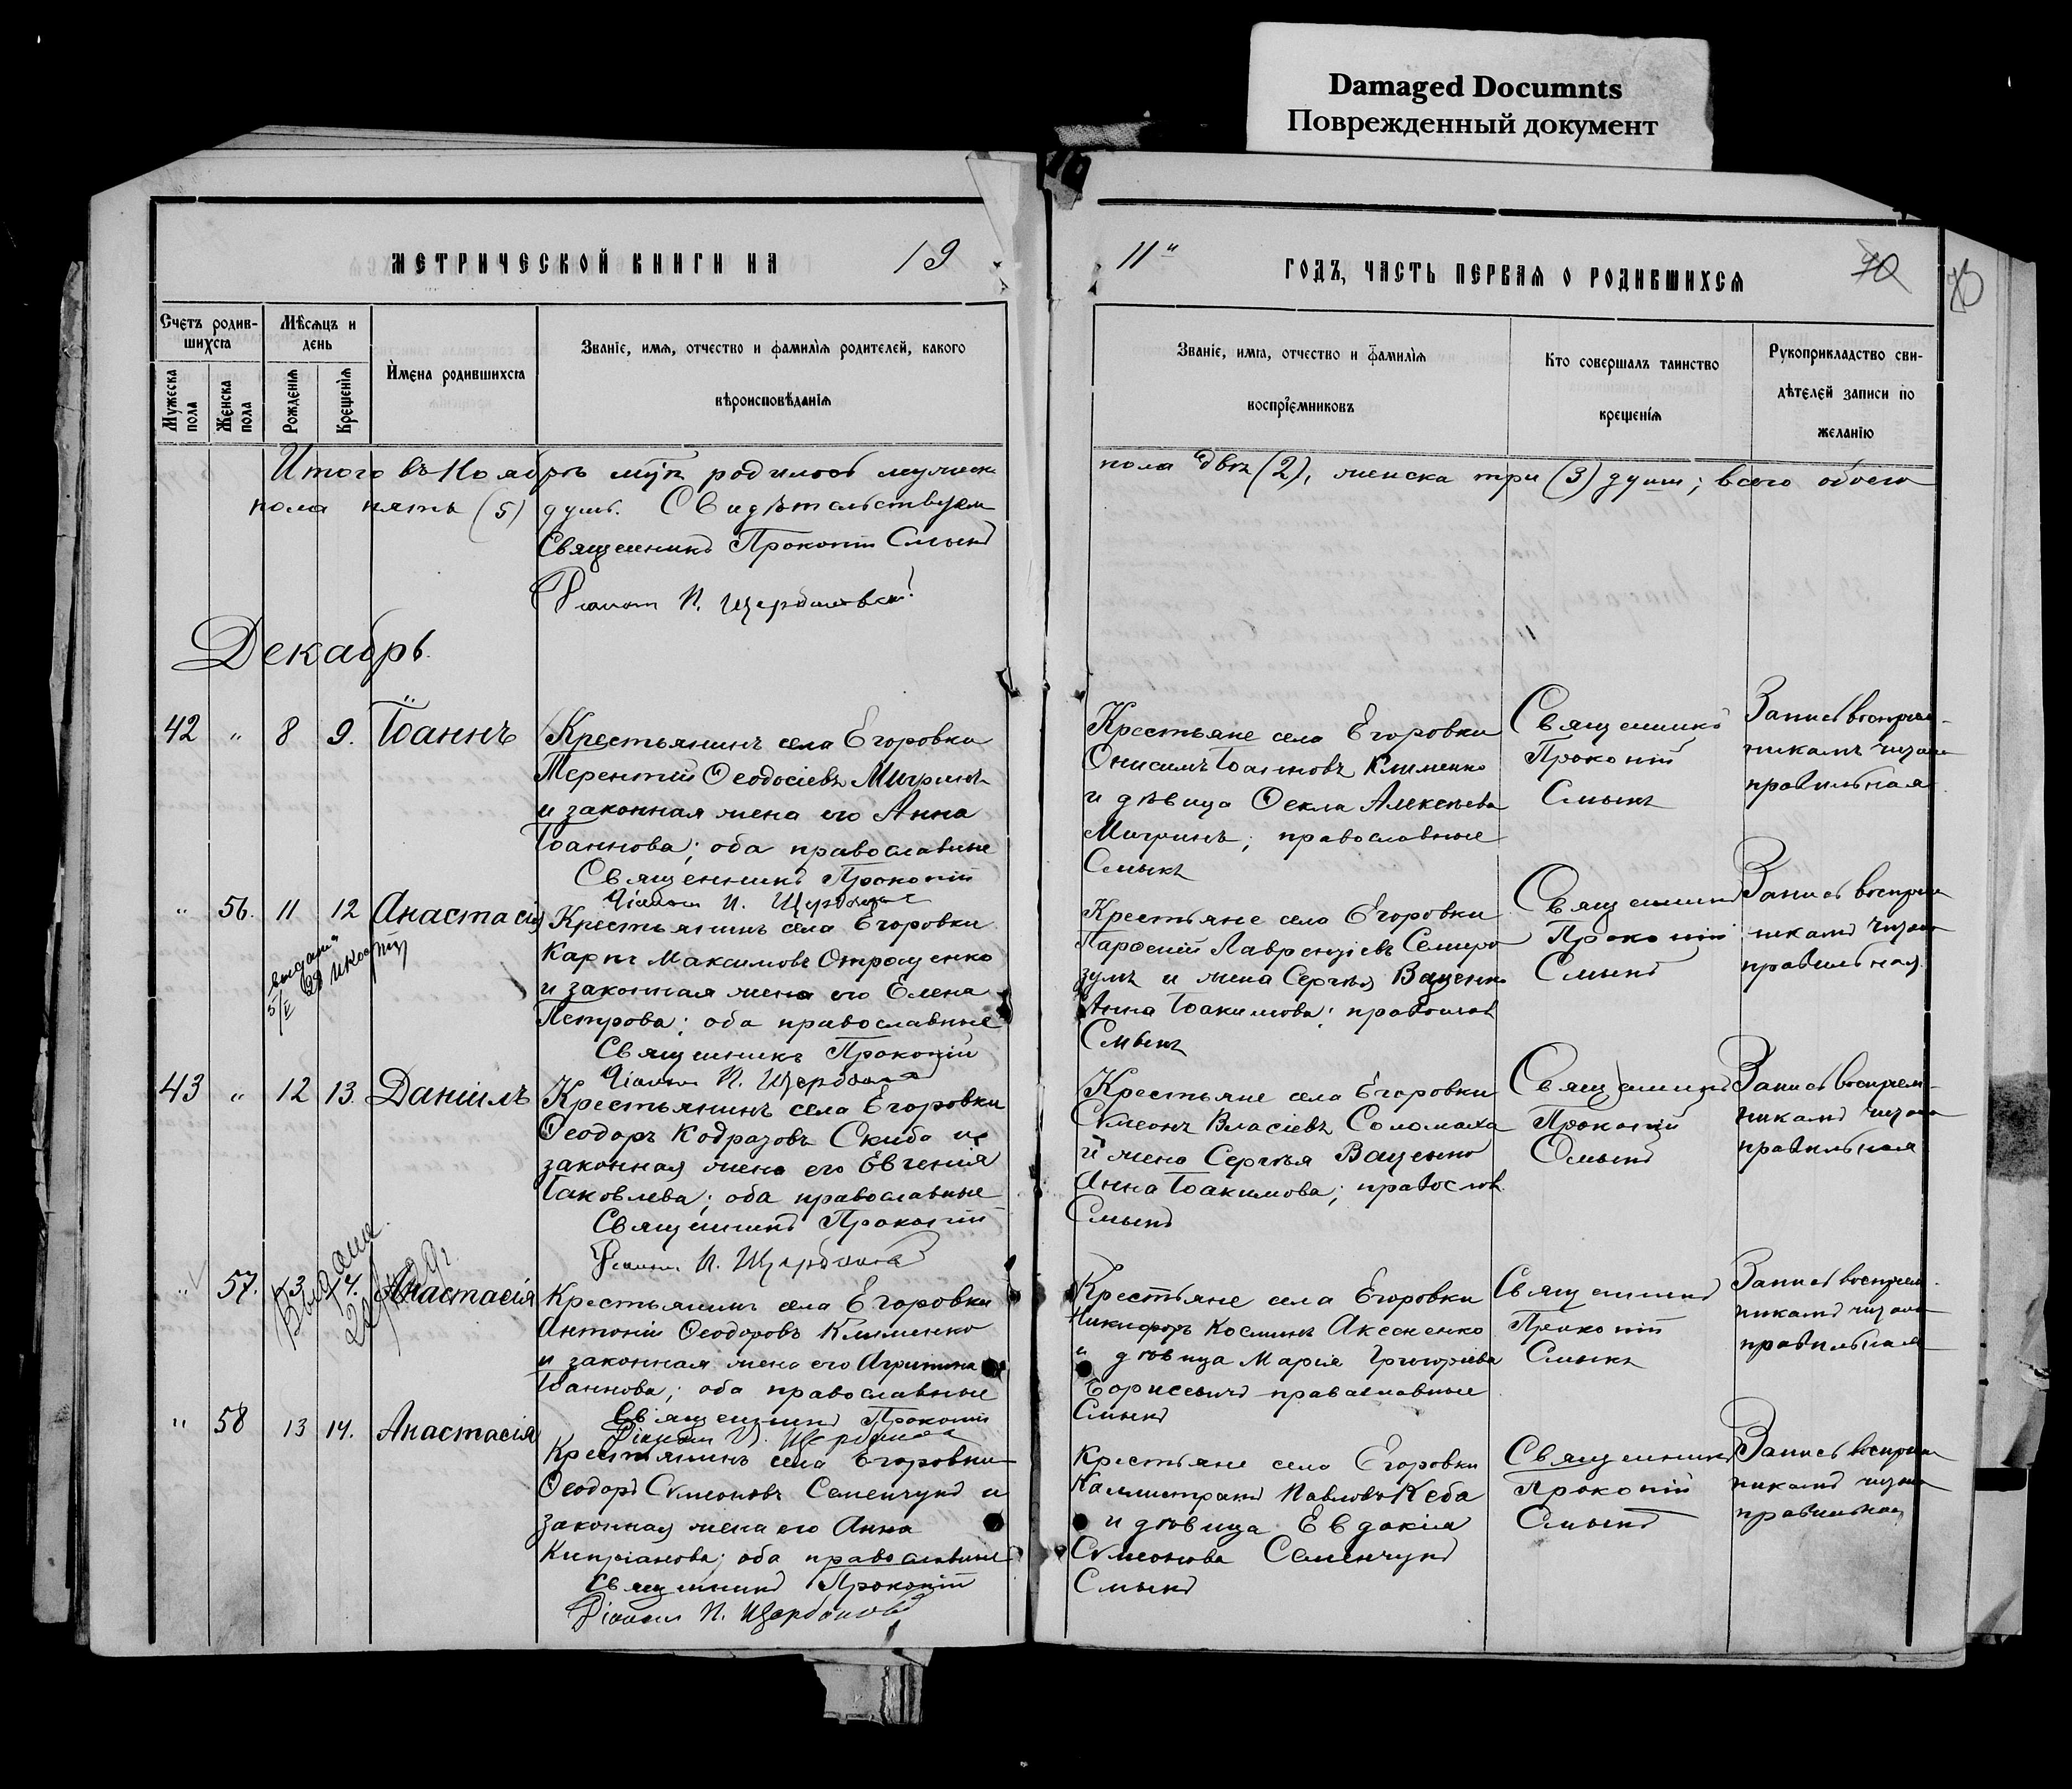 Damaged Documnts
Поврежденный документ
МЕТРИЧЕСКОЙ КНИГИ НА 19
11 ГОДЪ, ЧАСТЬ ПЕРВАЯ О РОДИВШИХСЯ
70
Счетъ родив-
шихся
Мѣсяцъ и
день
Мужеска пола
Женска пола
Рожденія
Крещенія
Имена родившихся
Званіе, имя, отчество и фамилія родителей, какого
вѣроисповѣданія
Званіе, имя, отчество и фамилія
воспріемниковъ
Кто совершалъ таинство
крещенія
Рукоприкладство сви-
дѣтелей записи по
желанію
Итого въ Ноябрѣ родилось мужеска
пола двѣ (2), женска три (3) душъ; всего обоего
пола пять (5) душъ. Свидѣтельствуем
Священникъ Прокопій Смыкъ
Діаконъ П.
Декабрь
42 " 8 9. Іоаннъ
Крестьянинъ села Егоровки
Терентій Ѳеодосіевъ Мигринъ
и законная жена его Анна
Іоаннова; оба православные
Священникъ Прокопій
Діаконъ П.
Крестьяне села Егоровки
Онисимъ Іоанновъ Клименко
и дѣвица Ѳекла Алексѣева
Мигринъ; православные
Смыкъ
Священникъ
Прокопій
Смыкъ
Запись воспріем-
никамъ читана
правильная
" 56. 11 12 Анастасія
Крестьянинъ села Егоровки
Карпъ Максимовъ Отрощенко
и законная жена его Елена
Петрова; оба православные
Священникъ Прокопій
Діаконъ П.
Крестьяне села Егоровки
Парѳеній Лаврентіевъ Семиро
зумъ и жена Сергѣя Ваценко
Анна Іоакимова; православ
Смыкъ
Священникъ
Прокопій
Смыкъ
Запись воспріем
никамъ читана
правильная
43 " 12 13. Даніилъ
Крестьянинъ села Егоровки
Ѳеодоръ Кодразовъ Скиба и
законная жена его Евгенія
Іаковлева; оба православные
Священникъ Прокопій
Діаконъ П.
Крестьяне села Егоровки
Сѵмеонъ Власіевъ Соломаха
и жена Сергѣя Ваценко
Анна Іоакимова; православ.
Смыкъ
Священникъ
Прокопій
Смыкъ
Запись воспріем-
никамъ читана
правильная
" 57. 13 14. Анастасія
Крестьянинъ села Егоровки
Антоній Ѳеодоровъ Клименко
и законная жена его Агрипина
Іоаннова; оба православные
Священникъ Прокопій
Діаконъ П.
Крестьяне села Егоровки
Никифоръ Косминъ Аксененко
и дѣвица Марія Григоріева
Борисевичъ православные
Смыкъ
Священникъ
Прокопій
Смыкъ
Запись воспріем-
никамъ читана
правильная
" 58 13 14. Анастасія
Крестьянинъ села Егоровки
Ѳеодоръ Сѵмеоновъ Семенчукъ и
законная жена его Анна
Кипріанова; оба православные
Священникъ Прокопій
Діаконъ П.
Крестьяне села Егоровки
Каллистратъ Павловъ Кеба
и дѣвица Евдокія
Сѵмеонова Семенчукъ
Смыкъ
Священникъ
Прокопій
Смыкъ
Запись воспріем
никамъ читана
правильная